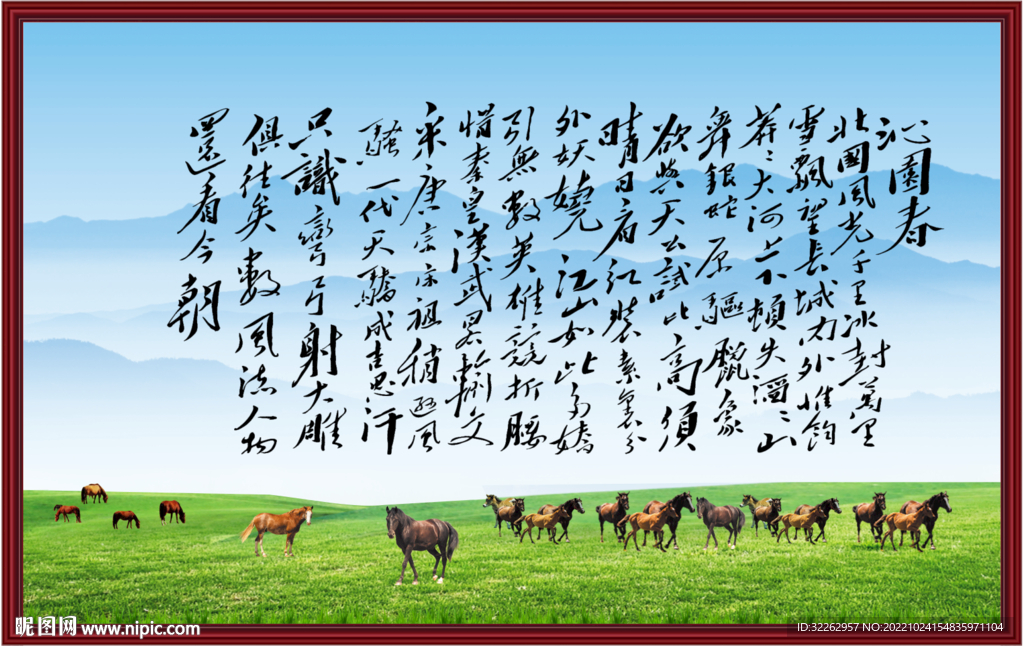 沁園春
北國風光千里冰封萬里
雪飄望長城內外惟餘
莽〻大河上下頓失滔〻山
舞銀蛇原驅臘象
欲與天公試比高須
晴日看紅裝素裹分
外妖嬈江山如此多嬌
引無數英雄競折腰
惜秦皇漢武略輸文
采唐宗宋祖稍遜風
騷一代天驕成吉思汗
只識彎弓射大雕
俱往矣數風流人物
還看今朝
昵图网 www.nipic.com
ID:32262957 NO:20221024154835971104